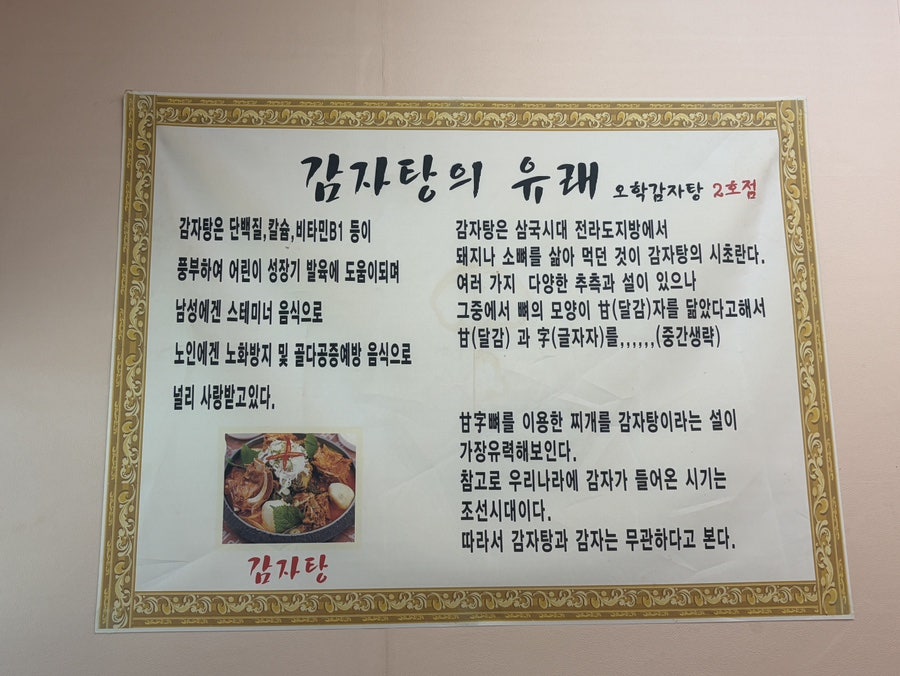 감자탕의 유래 오학감자탕 2호점
감자탕은 단백질,칼슘,비타민B1 등이
풍부하여 어린이 성장기 발육에 도움이되며
남성에겐 스테미너 음식으로
노인에겐 노화방지 및 골다공증예방 음식으로
널리 사랑받고있다.
감자탕
감자탕은 삼국시대 전라도지방에서
돼지나 소뼈를 삶아 먹던 것이 감자탕의 시초란다.
여러 가지 다양한 추측과 설이 있으나
그중에서 뼈의 모양이 甘(달감)자를 닮았다고해서
甘(달감) 과 字(글자자)를,,,,,,(중간생략)
甘字뼈를 이용한 찌개를 감자탕이라는 설이
가장유력해보인다.
참고로 우리나라에 감자가 들어온 시기는
조선시대이다.
따라서 감자탕과 감자는 무관하다고 본다.